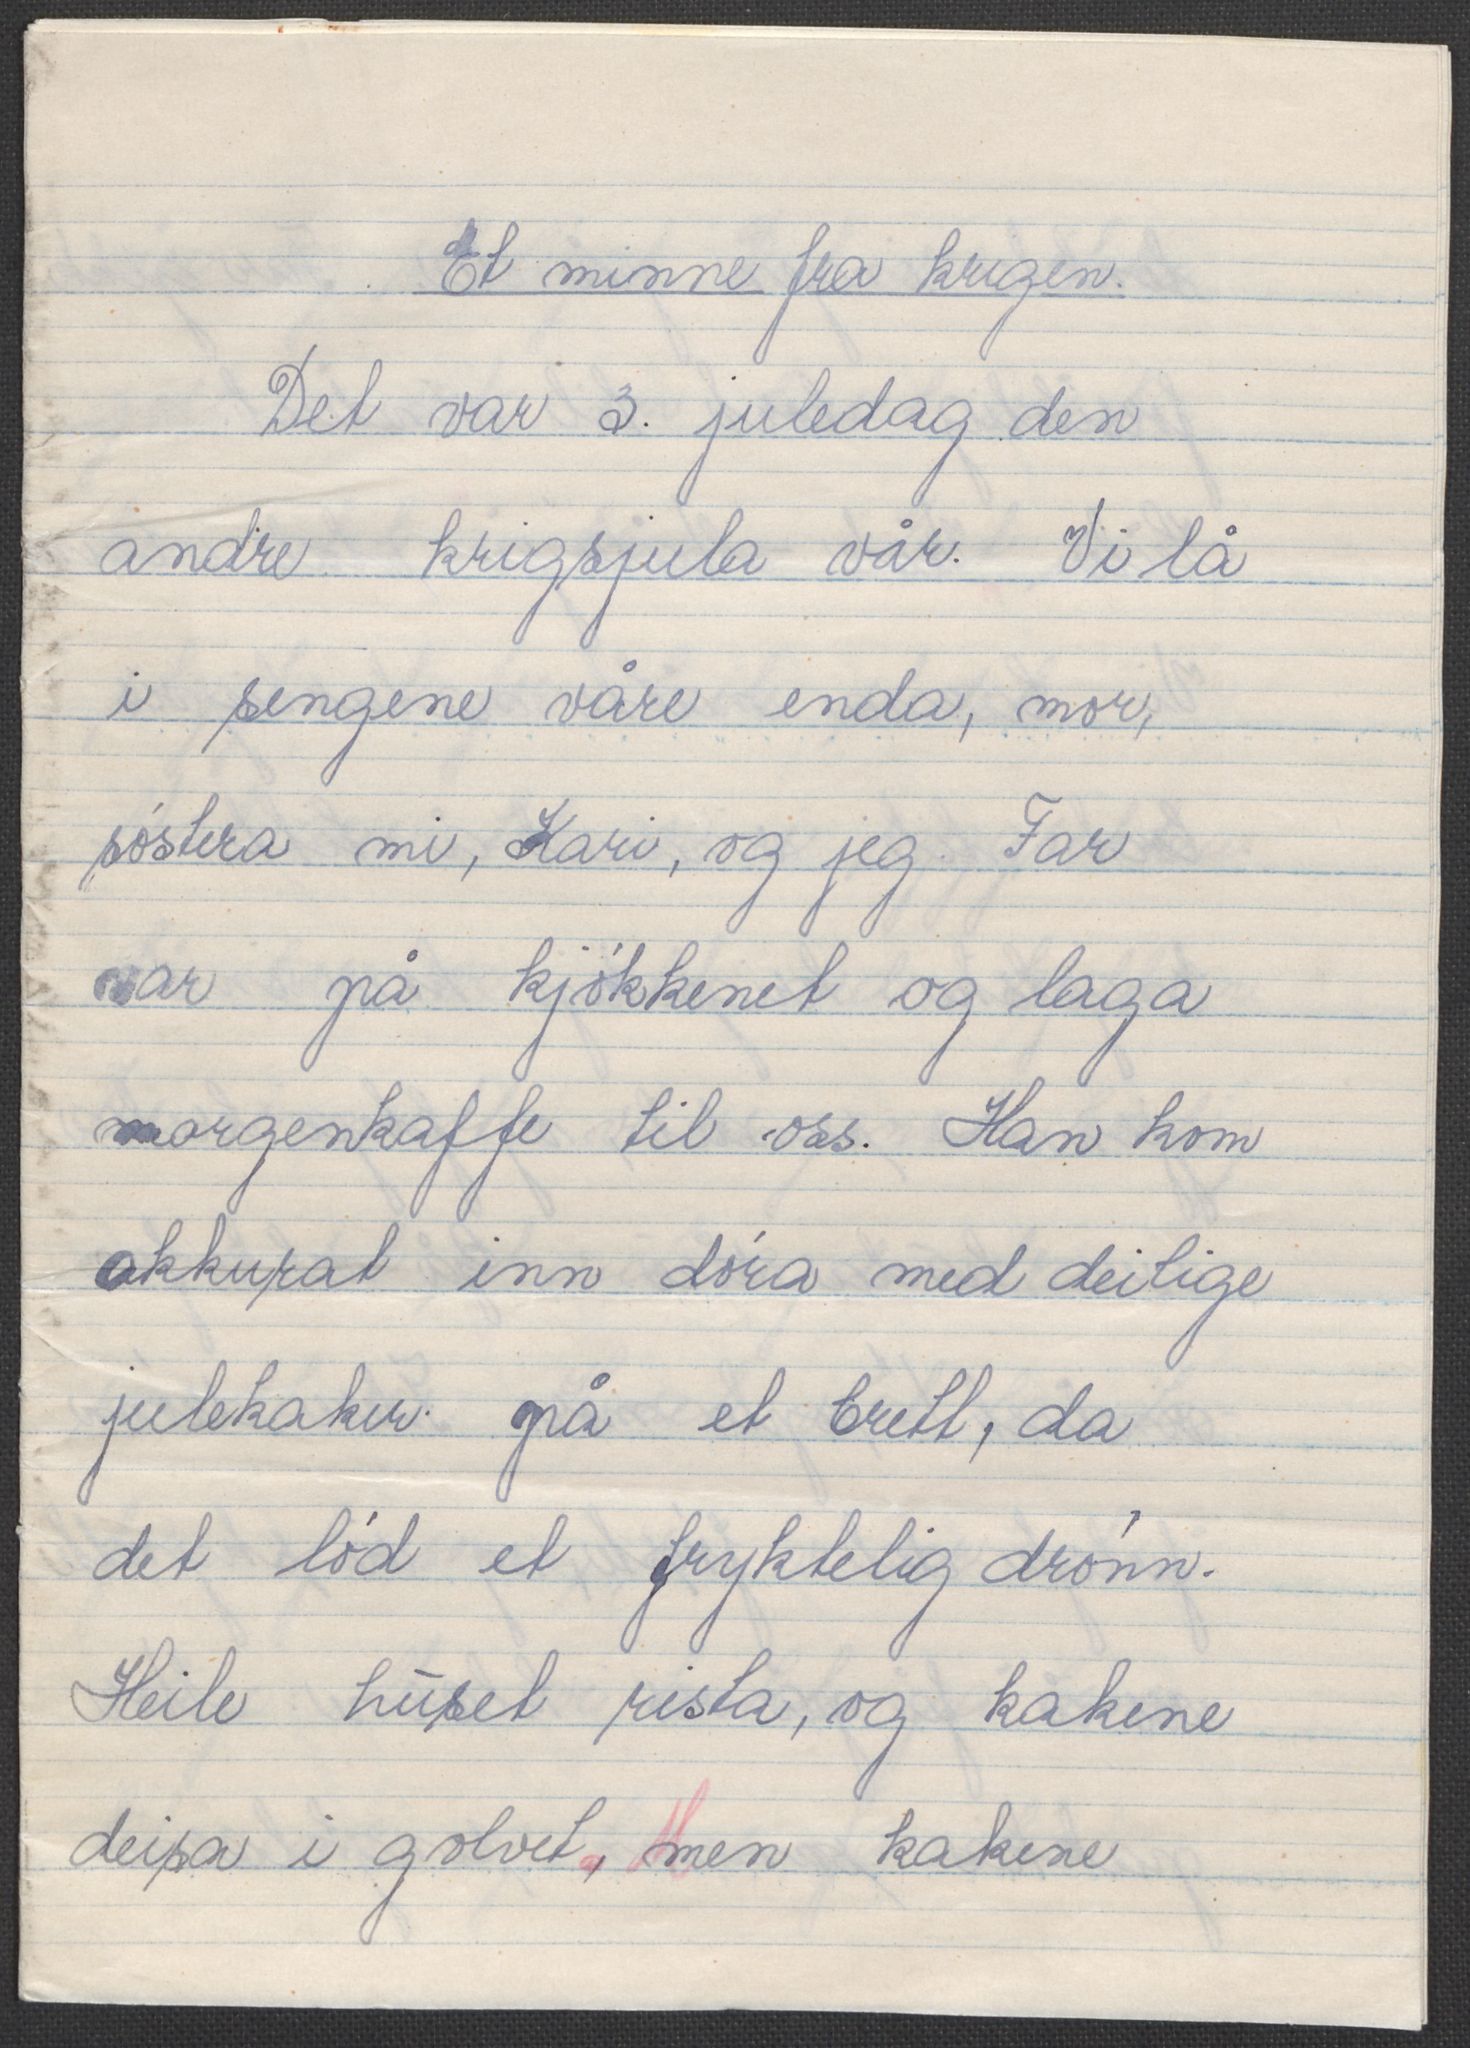 Et minne fra krigen.
Det var 3. juledag den
andre krigsjula vår. Vi lå
i sengene våre enda, mor,
sóstera mi, Kari, og jeg. Far
var på kjókkenet og laga
morgenkaffe til oss. Han kom
akkurat inn dóra med deilige
julekaker på et brett, da
det lód et fryktelig drónn.
Heile huset rista, og kakene
deisa i golvet, men kakene